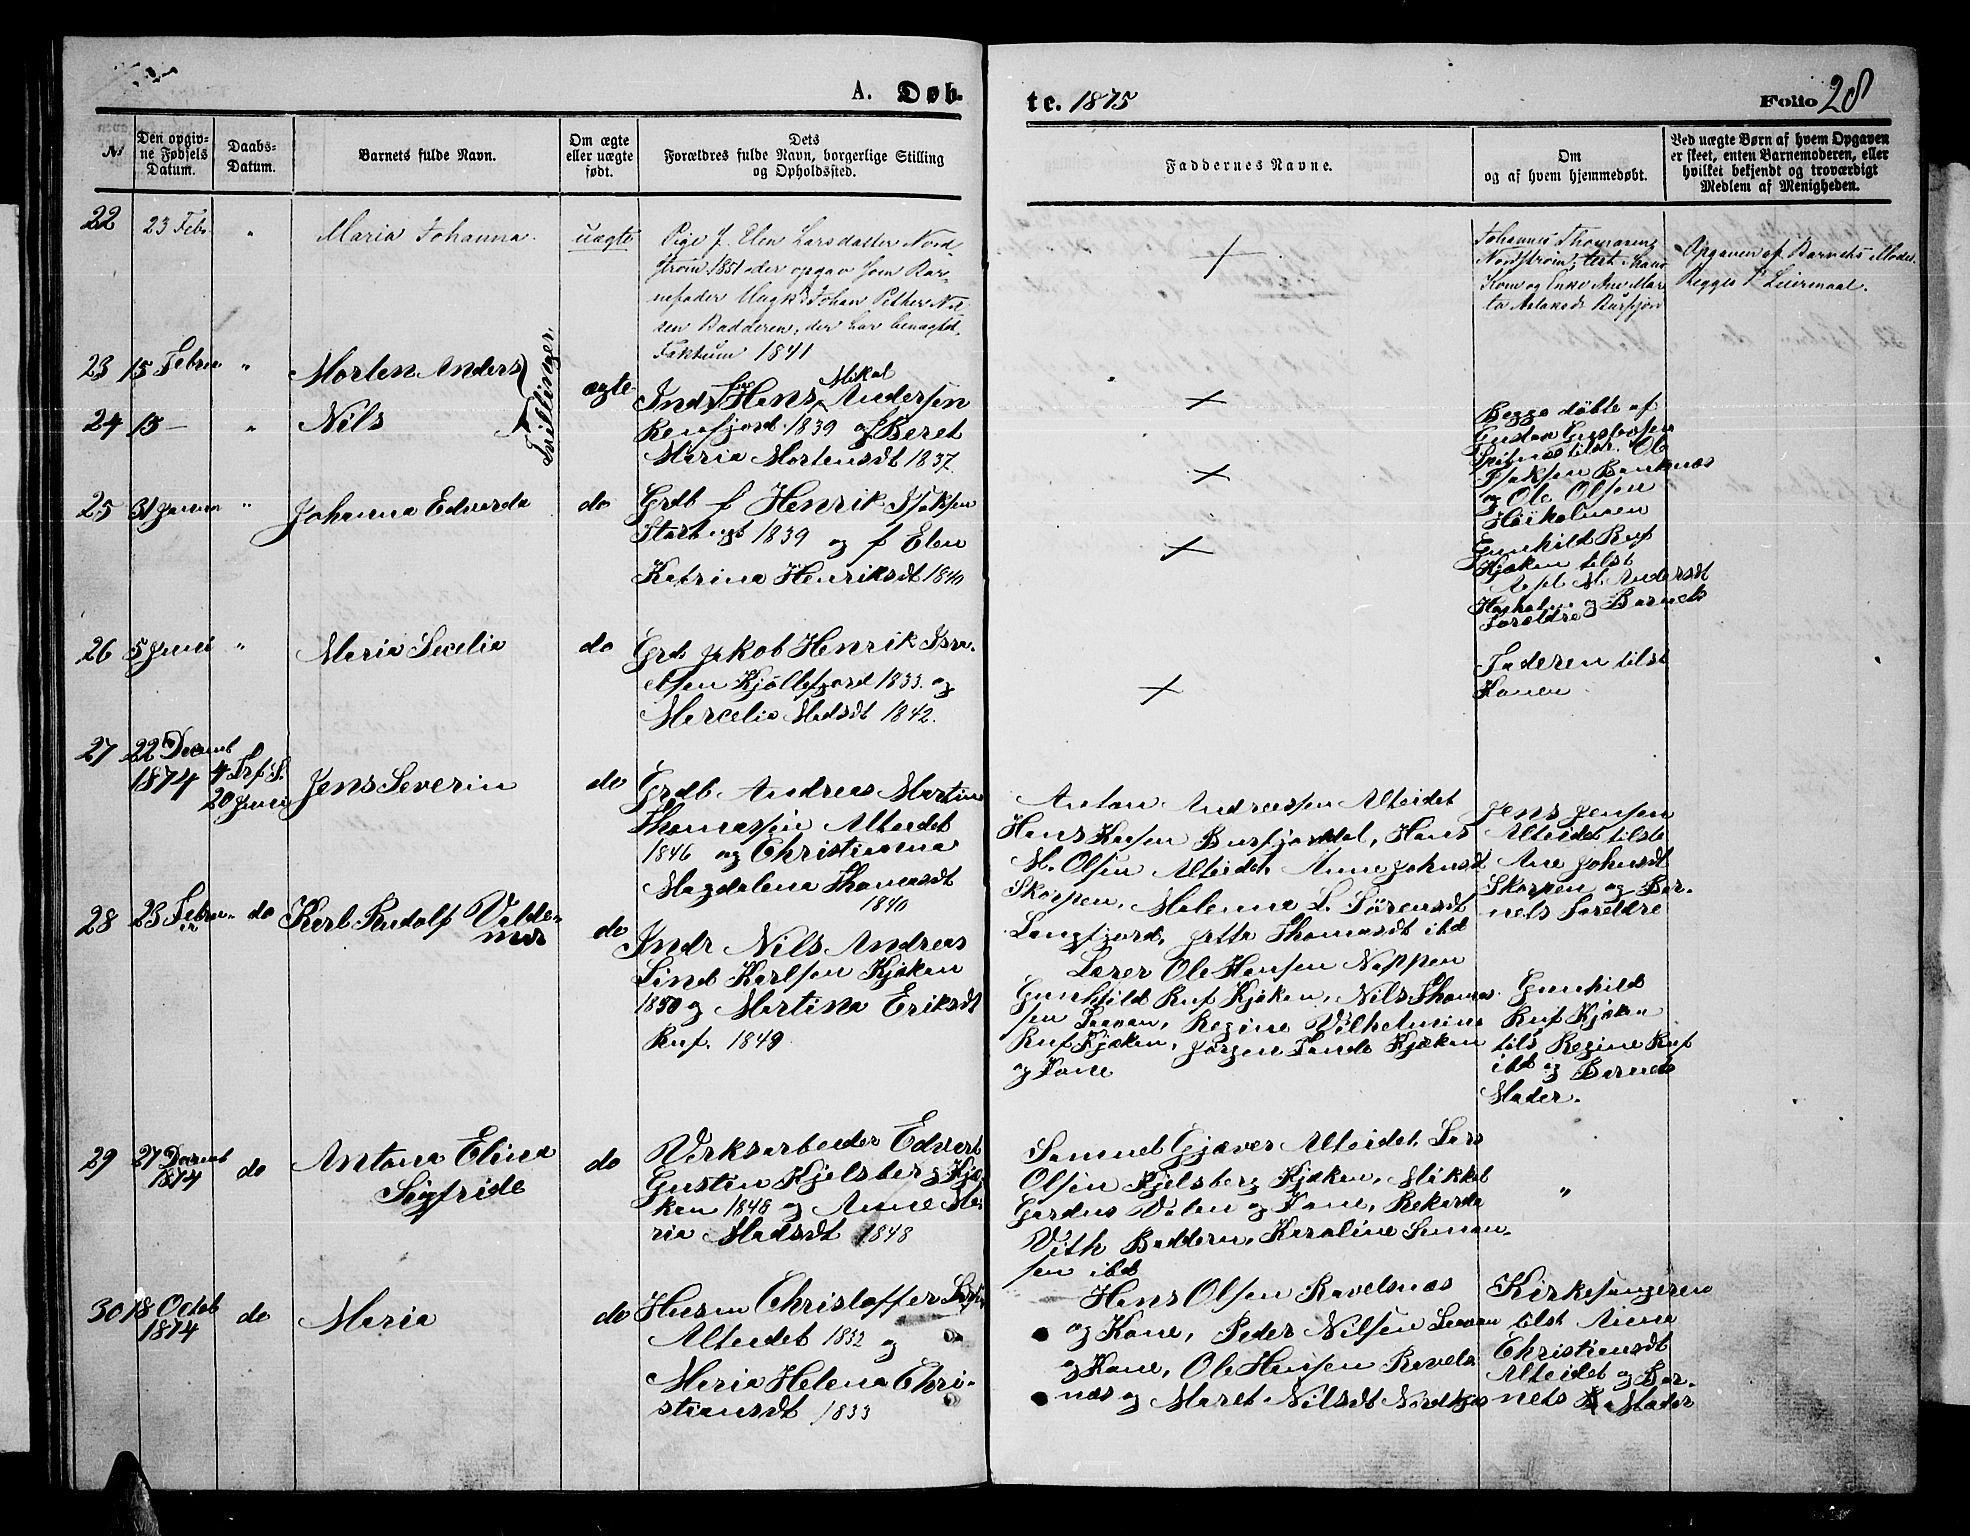 A. Døb-
te. 1875
Folio 28
№
Den opgiv-
ne Fødsels
Datum.
Daabs-
Datum.
Barnets fulde Navn.
Om ægte
eller uægte
født.
Dets
Forældres fulde Navn, borgerlige Stilling
og Opholdssted.
Faddernes Navne.
Om
og af hvem hjemmedøbt.
Ved uægte Børn af hvem Opgaven
er skeet, enten Barnemoderen, eller
hvilket bekjendt og troværdigt
Medlem af Menigheden.
22
23 Febr.
"
Maria Johanna.
uægte
Pige f. Elen Larsdatter Nord
strøm 1851 der opgav som Bar-
nefader Ungk. Johan Petter Nil
sen Badderen, der har benægtet
Faktum 1841
+
Johannes Thomassen
Nordstrøm, test. Hans
Kone og Enke Ane Mar
ta Aslaksdt Burfjord
Opgaven af Barnets Moder
Begges 1ste Leiermaal.
23
15 Februr
"
Morten Anders
Tvillinger
ægte
Indr Hans Mikal Andersen
24
15 –
"
Nils
Renfjord 1839 og f Beret
Maria Mortensdt 1837.
+
+
Begge døbte af
Gustav Gustavsen
Spitnæs tilst. Ole
Isaksen Banknæs
og Ole Olsen
Høikolmoen
25
31 Januar
"
Johanna Edvarda
do
Grdb f Henrik Isaksen
Storbugt 1839 og f Elen
Katrina Henriksdt 1840
+
Gunhild Ruf
Kjæken tilst
M Andersdt
og Barnets
Foreldre
26
5 Juni
"
Maria Secelia
do
Grdb Jakob Henrik Isra-
elsen Kjøllefjord 1833. og
Marcelia Madsdt 1842.
+
Faderen tilst
Konen
27
22 Decembt
1874
4 S. e. Trf.
20 Juni
Jens Severin
do
Grdb Andreas Martin
Thomassen Alteidet
1846 og Christianna
Magdalena Thomasdt
1840
Anton Andreassen Alteidet
Hans Kaasen Burfjorddal, Hans
M. Olsen Alteidet, Anne Johnsdt
Skorpen, Malenna L. Sørensdt
Langfjord, Jetta Thomasdt ibd
Jens Jensen
Alteidet tilste
Ane Johnsdt
Skorpen og Bar-
nets Foreldre
28
23 Febru-
ar
do
Karl Rudolf Valde-
mar
do
Indr Nils Andreas
Lind Karlsen Kjæken
1850 og Martina Eriksdt
Ruf. 1849
Lærer Ole Hansen Noppen
Gunhild Ruf Kjæken, Nils Thomas
sen Leevan, Regine Vilhelmine
Ruf Kjæken, Jørgen Kjæken
og Kone
Gunhild
Ruf Kjæken
tils Regine Ruf
ibd og Barnets
Moder.
29
27 Decembt
1874
do
Antona Elina
Sigfride
do
Verksarbeider Edvart
Gustin Kjelsberg Kjæ-
ken 1848 og Anne Ma-
ria Madsdt 1848
Samuel Gjæver Alteidet, Lars
Olsen Kjelsberg Kjæken, Mikkel
Gardus Valen og Kone, Rekarda
Vith Baddern, Karoline Simon-
sen ibd
"
30
18 Octob
1874
do
Maria
do
Husm Christoffer
Alteidet 1832 og
Maria Helena Chri-
stiansdt 1833
Hans Olsen Ravelsnæs
og Kone, Peder Nilsen Leevan
og Kone, Ole Hansen Ravels
næs og Maret Nilsdt
Kirkesangeren
tilst Anne
Christiansdt
Alteidet og Bar-
nets Moder